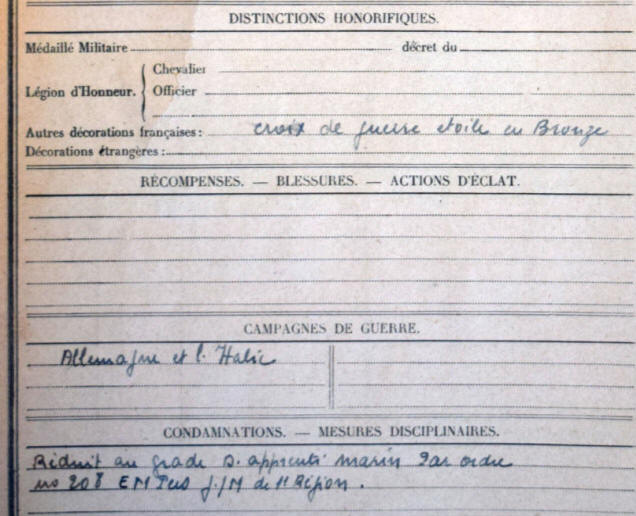 DISTINCTIONS HONORIFIQUES.
Médaillé Militaire décret du
Chevalier
Légion d'Honneur. Officier
Autres décorations françaises : croix de guerre etoile en Bronze
Décorations étrangères :
RÉCOMPENSES. — BLESSURES. — ACTIONS D'ÉCLAT.
CAMPAGNES DE GUERRE.
Allemagne et l. Italie
CONDAMNATIONS. — MESURES DISCIPLINAIRES.
Réduit au grade D. apprenti marin Par ordre
no 208 EM de 1e Région.